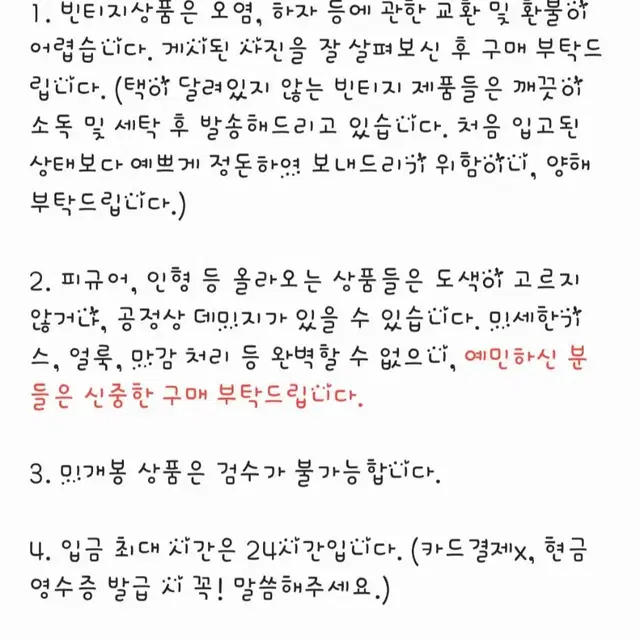 1. 빈티지상품은 오염, 하자 등에 관한 교환 및 환불이
어렵습니다. 게시된 사진을 잘 살펴보신 후 구매 부탁드
립니다. (택이 달려있지 않는 빈티지 제품들은 깨끗이
소독 및 세탁 후 발송해드리고 있습니다. 처음 입고된
상태보다 예쁘게 정돈하여 보내드리기 위함이니, 양해
부탁드립니다.)
2. 피규어, 인형 등 올라오는 상품들은 도색이 고르지
않거나, 공정상 데미지가 있을 수 있습니다. 미세한기
스, 얼룩, 마감 처리 등 완벽할 수 없으니, 예민하신 분
들은 신중한 구매 부탁드립니다.
3. 미개봉 상품은 검수가 불가능합니다.
4. 입금 최대 시간은 24시간입니다. (카드결제x, 현금
영수증 발급 시 꼭! 말씀해주세요.)